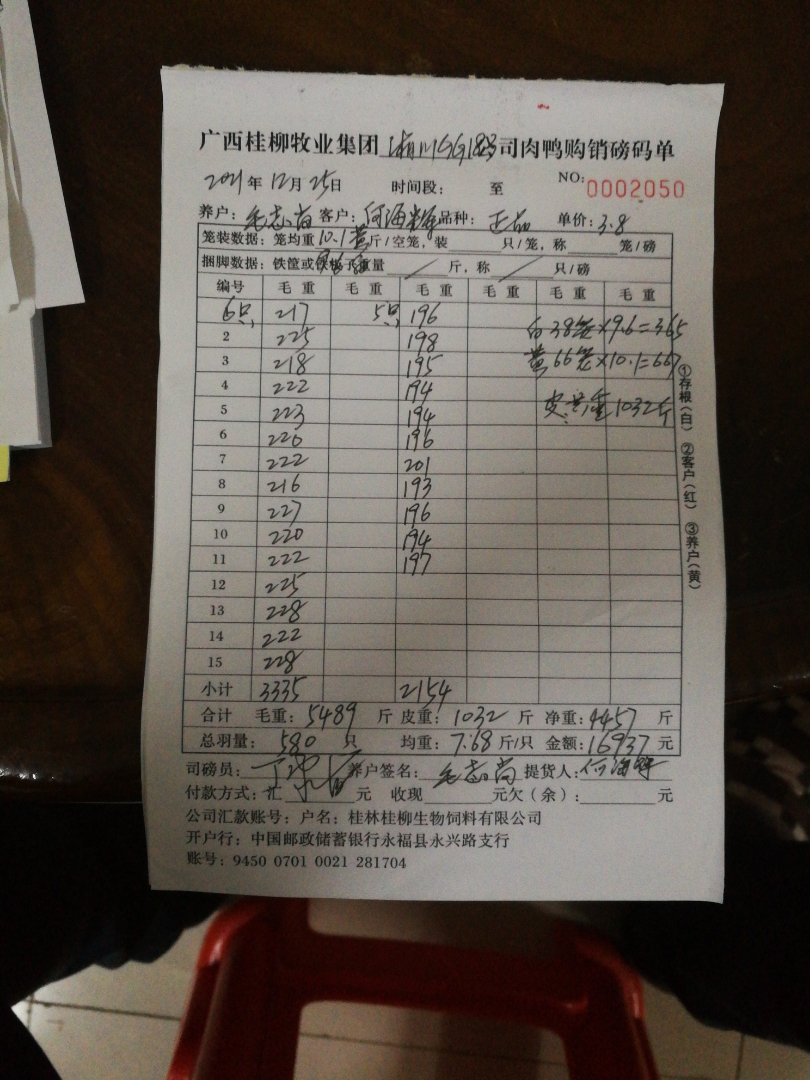 广西桂柳牧业集团 司肉鸭购销磅码单
2021年12月25日 时间段: 至 NO: 0002050
养户: 毛志尚 客户: 何海辉 品种: 正品 单价: 3.8
笼装数据: 笼均重10.1黄斤/空笼, 装 只/笼, 称 笼/磅
捆脚数据: 铁筐或 重量 / 斤, 称 / 只/磅
编号 毛重 毛重 毛重 毛重 毛重 毛重
6只 217 5只 196 白38笼×9.6=365
2 225 198
3 218 195 黄66笼×10.1=667
4 222 194
5 223 194 皮共重1032斤
6 220 196
7 222 201
8 216 193
9 227 196
10 220 194
11 222 197
12 225
13 228
14 222
15 228
小计 3335 2154
合计 毛重: 5489 斤 皮重: 1032 斤 净重: 4457 斤
总羽量: 580 只 均重: 7.68 斤/只 金额: 16937 元
司磅员: 养户签名: 毛志尚 提货人: 何海辉
付款方式: 汇 元 收现 元欠(余): 元
公司汇款账号: 户名: 桂林桂柳生物饲料有限公司
开户行: 中国邮政储蓄银行永福县永兴路支行
账号: 9450 0701 0021 281704
①存根(白) ②客户(红) ③养户(黄)